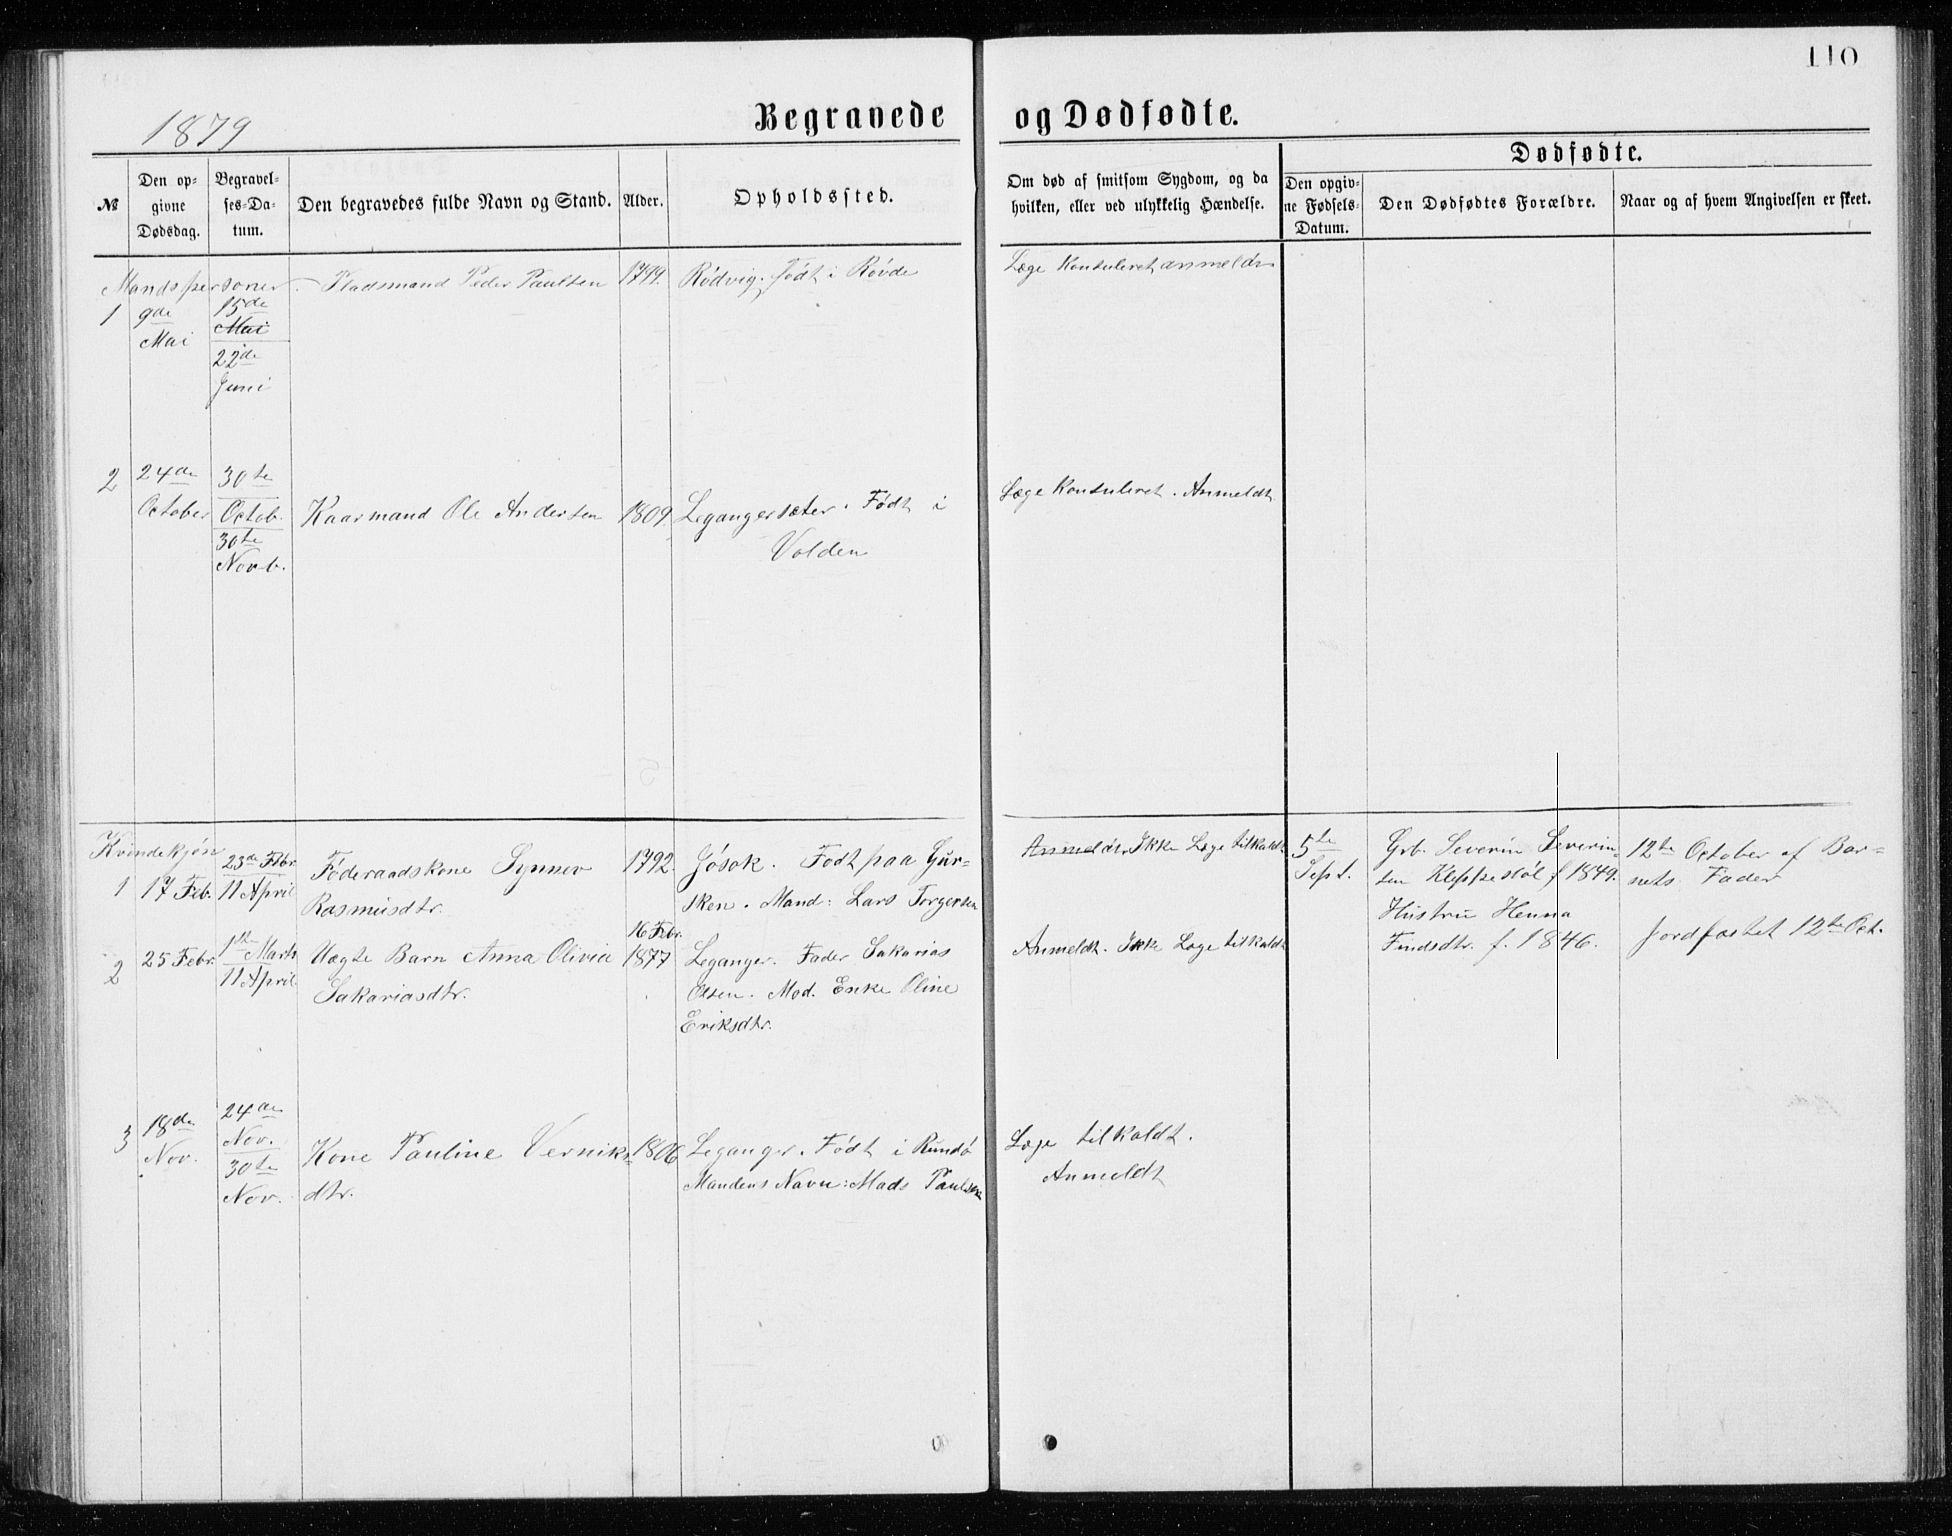 110
1879
Begravede og Dødfødte.
Dødfødte.
№
Den op-
givne
Dødsdag.
Begravel-
ses-Da-
tum.
Den begravedes fulde Navn og Stand.
Alder.
Opholdssted.
Om død af smitsom Sygdom, og da
hvilken, eller ved ulykkelig Hændelse.
Den opgiv-
ne Fødsels-
Datum.
Den Dødfødtes Forældre.
Naar og af hvem Angivelsen er skeet.
Mandspersoner.
1
9de
Mai
15de
Mai
22de
Juni
Pladsmand Peder Paulsen
1799.
Rødvig. født i Røvde
Læge Konsuleret anmeldt
2
24de
October
30te
Octob.
30te
Novb.
Kaarmand Ole Andersen
1809
Legangersæter. Født i
Volden
Læge Konsuleret. Anmeldt
Kvindekjøn
1
17 Feb.
23de Febr
11 April
Føderaadskone Synnov
Rasmusdtr.
1792.
Jøsok. Født paa Gur-
sken. Mand: Lars Torgersen
Anmeldt. Ikke Læge tilkaldt
5te
Sept.
Grb. Severin Severin-
sen Kleppestøl f 1849.
Hustru Henna
Findsdtr. f. 1846.
12te October af Bar-
nets Fader
Jordfæstet 12te Oct.
2
25 Febr.
1ste Marts
11 April
Uægte Barn Anna Olivia
Sakariasdtr.
16 Febr.
1877
Leganger. Fader Sakarias
Olsen. Mod. Enke Oline
Eriksdtr.
Anmeldt. Ikke Læge tilkaldt
3
18de
Nov.
24de
Nov.
30te
Nov.
Kone Pauline Verniks-
dtr.
1806
Leganger. Født i Rundø
Mandens Navn: Mads Paulsen
Læge tilkaldt.
Anmeldt